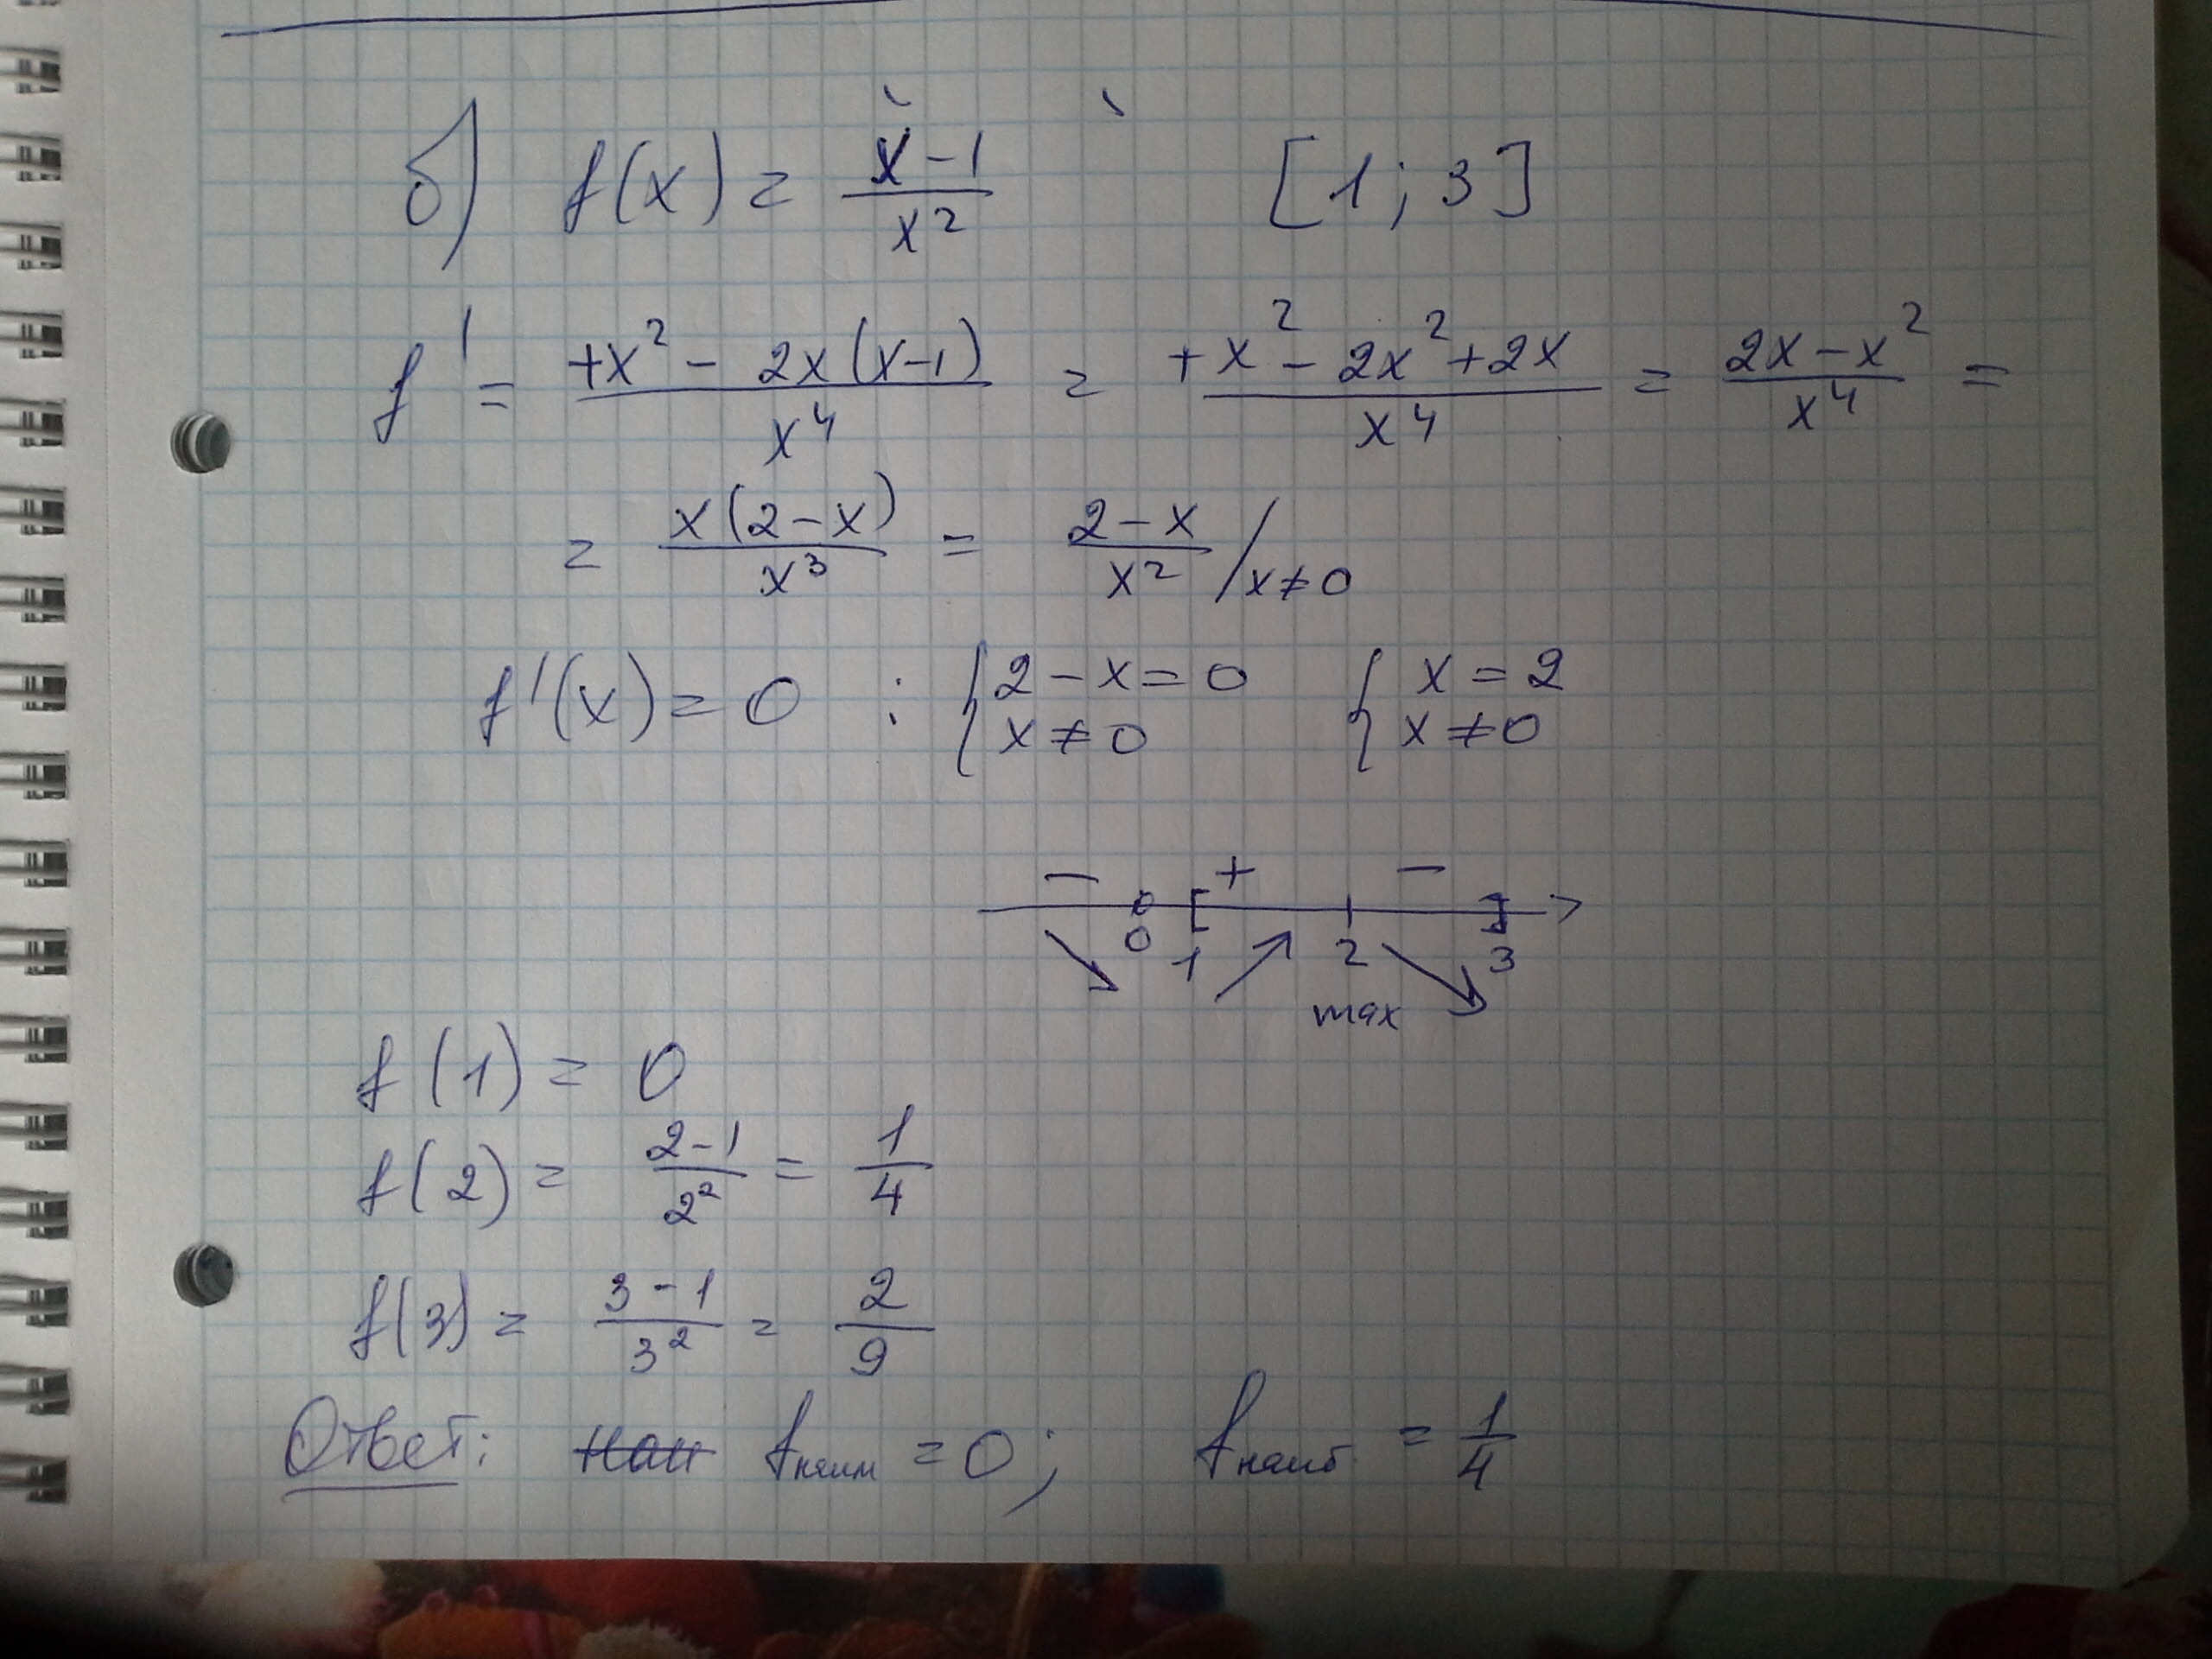 б) f(x) = (x-1)/x² [1; 3]
f' = (+x² - 2x(x-1))/x⁴ = (+x² - 2x² + 2x)/x⁴ = (2x - x²)/x⁴ =
= x(2-x)/x³ = (2-x)/x² / x≠0
f'(x) = 0 : { 2 - x = 0 { x = 2
x ≠ 0 x ≠ 0
- + -
0 1 2 3
max
f(1) = 0
f(2) = (2-1)/2² = 1/4
f(3) = (3-1)/3² = 2/9
Ответ: Наи fнаим = 0; fнаиб. = 1/4